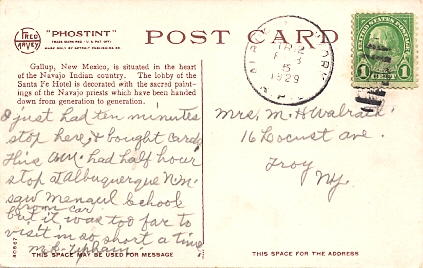 FRED HARVEY
"PHOSTINT"
TRADE MARK REG. U.S. PAT. OFF.
MADE ONLY BY DETROIT PUBLISHING CO.
POST CARD
Gallup, New Mexico, is situated in the heart
of the Navajo Indian country. The lobby of the
Santa Fe Hotel is decorated with the sacred paint-
ings of the Navajo priests which have been handed
down from generation to generation.
I just had ten minutes
stop here & bought card
this am. had half hour
stop at Albuquerque N.M.
saw Menaul School
from car
but it was too far to
visit in so short a time
M.E. Upham
THIS SPACE MAY BE USED FOR MESSAGE
FEB
5
1929
UNITED STATES POSTAGE
1 1
Mrs. M. H. Walrath
16 Locust Ave.
Troy
N.Y.
THIS SPACE IS FOR THE ADDRESS